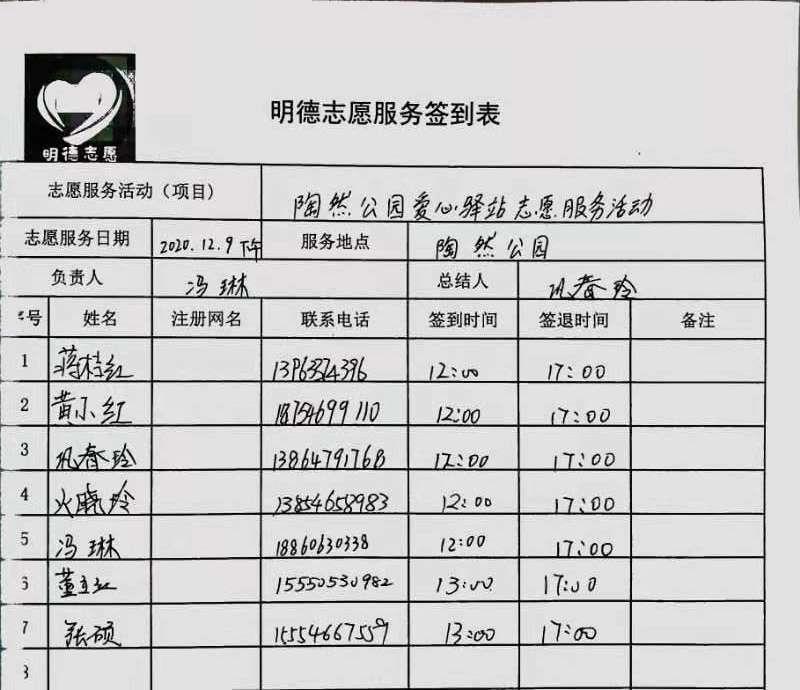 明德志愿
明德志愿服务签到表
志愿服务活动（项目） 陶然公园爱心驿站志愿服务活动
志愿服务日期 2020.12.9下午 服务地点 陶然公园
负责人 冯琳 总结人 巩春玲
号 姓名 注册网名 联系电话 签到时间 签退时间 备注
1 蒋桂红 12:00 17:00
2 黄小红 18754699110 12:00 17:00
3 巩春玲 13864791768 12:00 17:00
4 火晓玲 13854658983 12:00 17:00
5 冯琳 18860630338 12:00 17:00
6 董立红 15550530982 13:00 17:00
7 张硕 15554667559 13:00 17:00
8